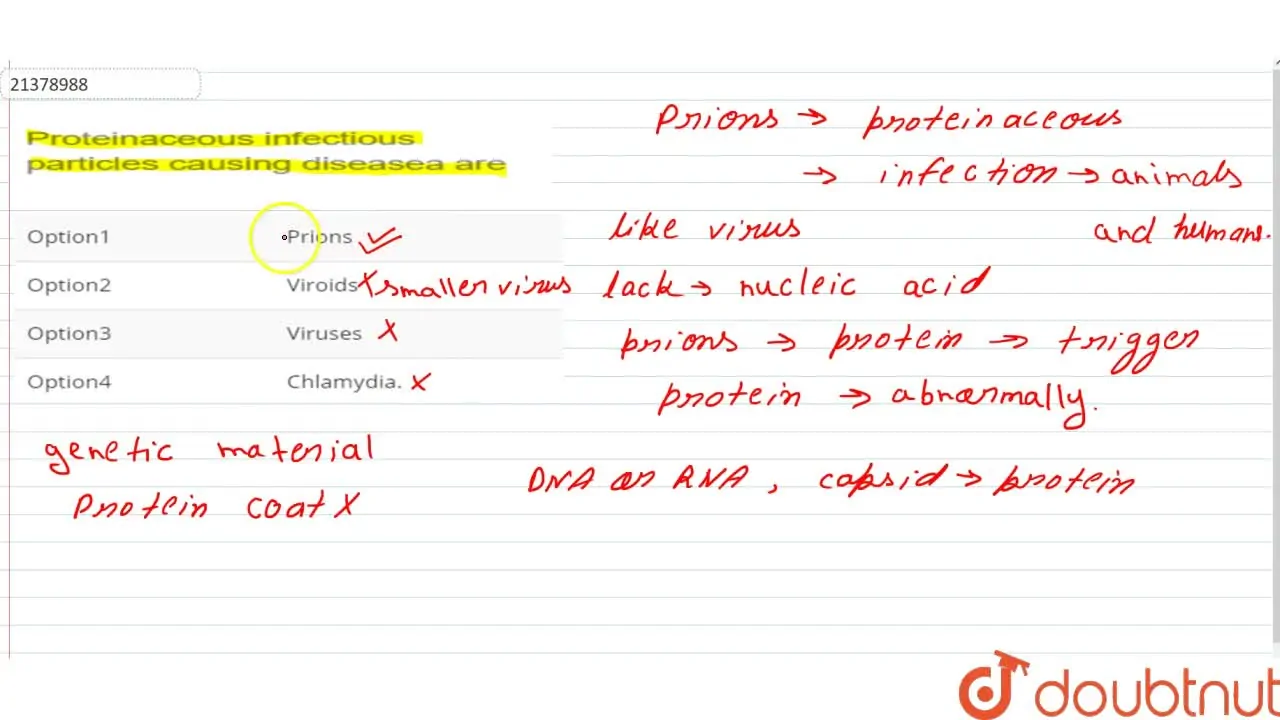 21378988
Proteinaceous infectious
particles causing diseasea are
Option1 Prions
Option2 Viroids x smaller virus
Option3 Viruses x
Option4 Chlamydia. x
genetic material
Protein coat x
Prions → proteinaceous
→ infection → animals
like virus and humans.
lack → nucleic acid
prions → protein → trigger
protein → abnormally.
DNA or RNA, capsid → protein
doubtnut